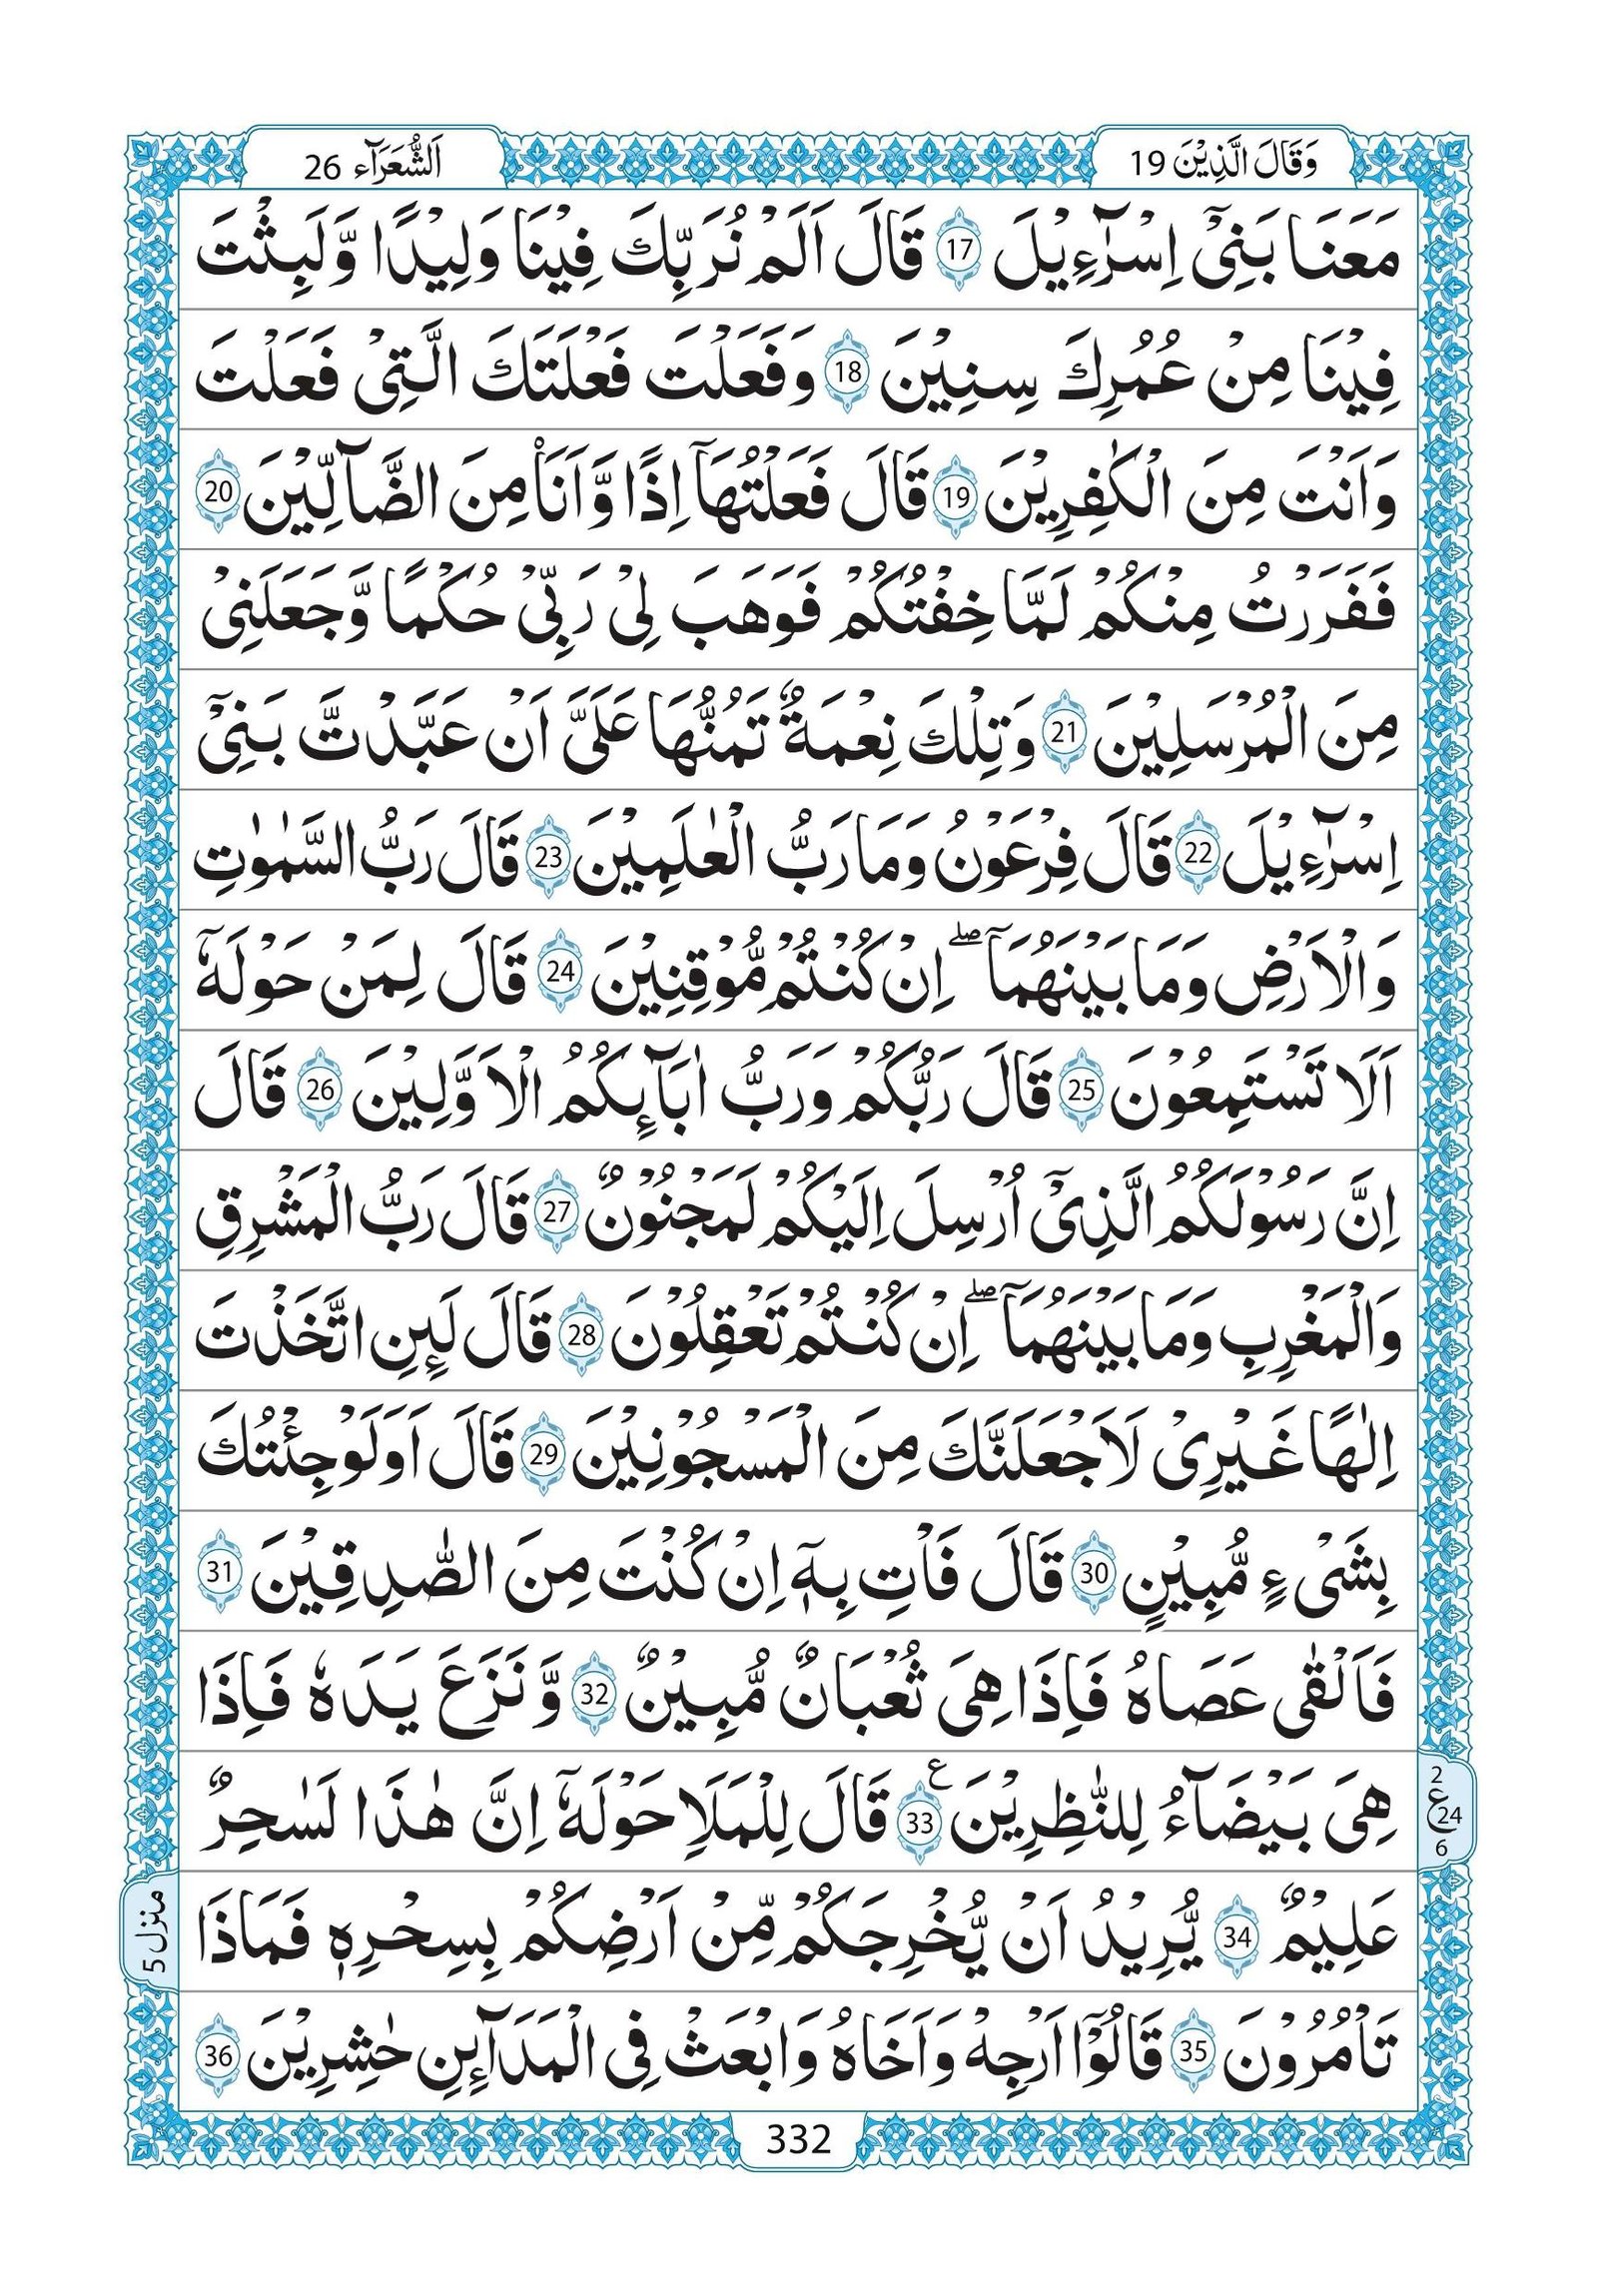 وَقَالَ الَّذِيْنَ 19
اَلشُّعَرَآء 26
مَعَنَا بَنِىْۤ اِسْرَآءِيْلَ 17 قَالَ اَلَمْ نُرَبِّكَ فِيْنَا وَلِيْدًا وَّلَبِثْتَ
فِيْنَا مِنْ عُمُرِكَ سِنِيْنَ 18 وَفَعَلْتَ فَعْلَتَكَ الَّتِىْ فَعَلْتَ
وَاَنْتَ مِنَ الْكٰفِرِيْنَ 19 قَالَ فَعَلْتُهَاۤ اِذًا وَّاَنَا۟ مِنَ الضَّآلِّيْنَ 20
فَفَرَرْتُ مِنْكُمْ لَمَّا خِفْتُكُمْ فَوَهَبَ لِىْ رَبِّىْ حُكْمًا وَّجَعَلَنِىْ
مِنَ الْمُرْسَلِيْنَ 21 وَتِلْكَ نِعْمَةٌ تَمُنُّهَا عَلَىَّ اَنْ عَبَّدْتَّ بَنِىْۤ
اِسْرَآءِيْلَ 22 قَالَ فِرْعَوْنُ وَمَا رَبُّ الْعٰلَمِيْنَ 23 قَالَ رَبُّ السَّمٰوٰتِ
وَالْاَرْضِ وَمَا بَيْنَهُمَاۤ ۖ اِنْ كُنْتُمْ مُّوْقِنِيْنَ 24 قَالَ لِمَنْ حَوْلَهٗۤ
اَلَا تَسْتَمِعُوْنَ 25 قَالَ رَبُّكُمْ وَرَبُّ اٰبَآئِكُمُ الْاَوَّلِيْنَ 26 قَالَ
اِنَّ رَسُوْلَكُمُ الَّذِىْۤ اُرْسِلَ اِلَيْكُمْ لَمَجْنُوْنٌ 27 قَالَ رَبُّ الْمَشْرِقِ
وَالْمَغْرِبِ وَمَا بَيْنَهُمَاۤ ۖ اِنْ كُنْتُمْ تَعْقِلُوْنَ 28 قَالَ لَئِنِ اتَّخَذْتَ
اِلٰهًا غَيْرِىْ لَاَجْعَلَنَّكَ مِنَ الْمَسْجُوْنِيْنَ 29 قَالَ اَوَلَوْ جِئْتُكَ
بِشَىْءٍ مُّبِيْنٍ 30 قَالَ فَاْتِ بِهٖۤ اِنْ كُنْتَ مِنَ الصّٰدِقِيْنَ 31
فَاَلْقٰى عَصَاهُ فَاِذَا هِىَ ثُعْبَانٌ مُّبِيْنٌ 32 وَّنَزَعَ يَدَهٗ فَاِذَا
هِىَ بَيْضَآءُ لِلنّٰظِرِيْنَ ع 33 قَالَ لِلْمَلَاِ حَوْلَهٗۤ اِنَّ هٰذَا لَسٰحِرٌ
2
ع 24
6
عَلِيْمٌ 34 يُّرِيْدُ اَنْ يُّخْرِجَكُمْ مِّنْ اَرْضِكُمْ بِسِحْرِهٖ فَمَاذَا
منزل 5
تَاْمُرُوْنَ 35 قَالُوْۤا اَرْجِهْ وَاَخَاهُ وَابْعَثْ فِى الْمَدَآئِنِ حٰشِرِيْنَ 36
332